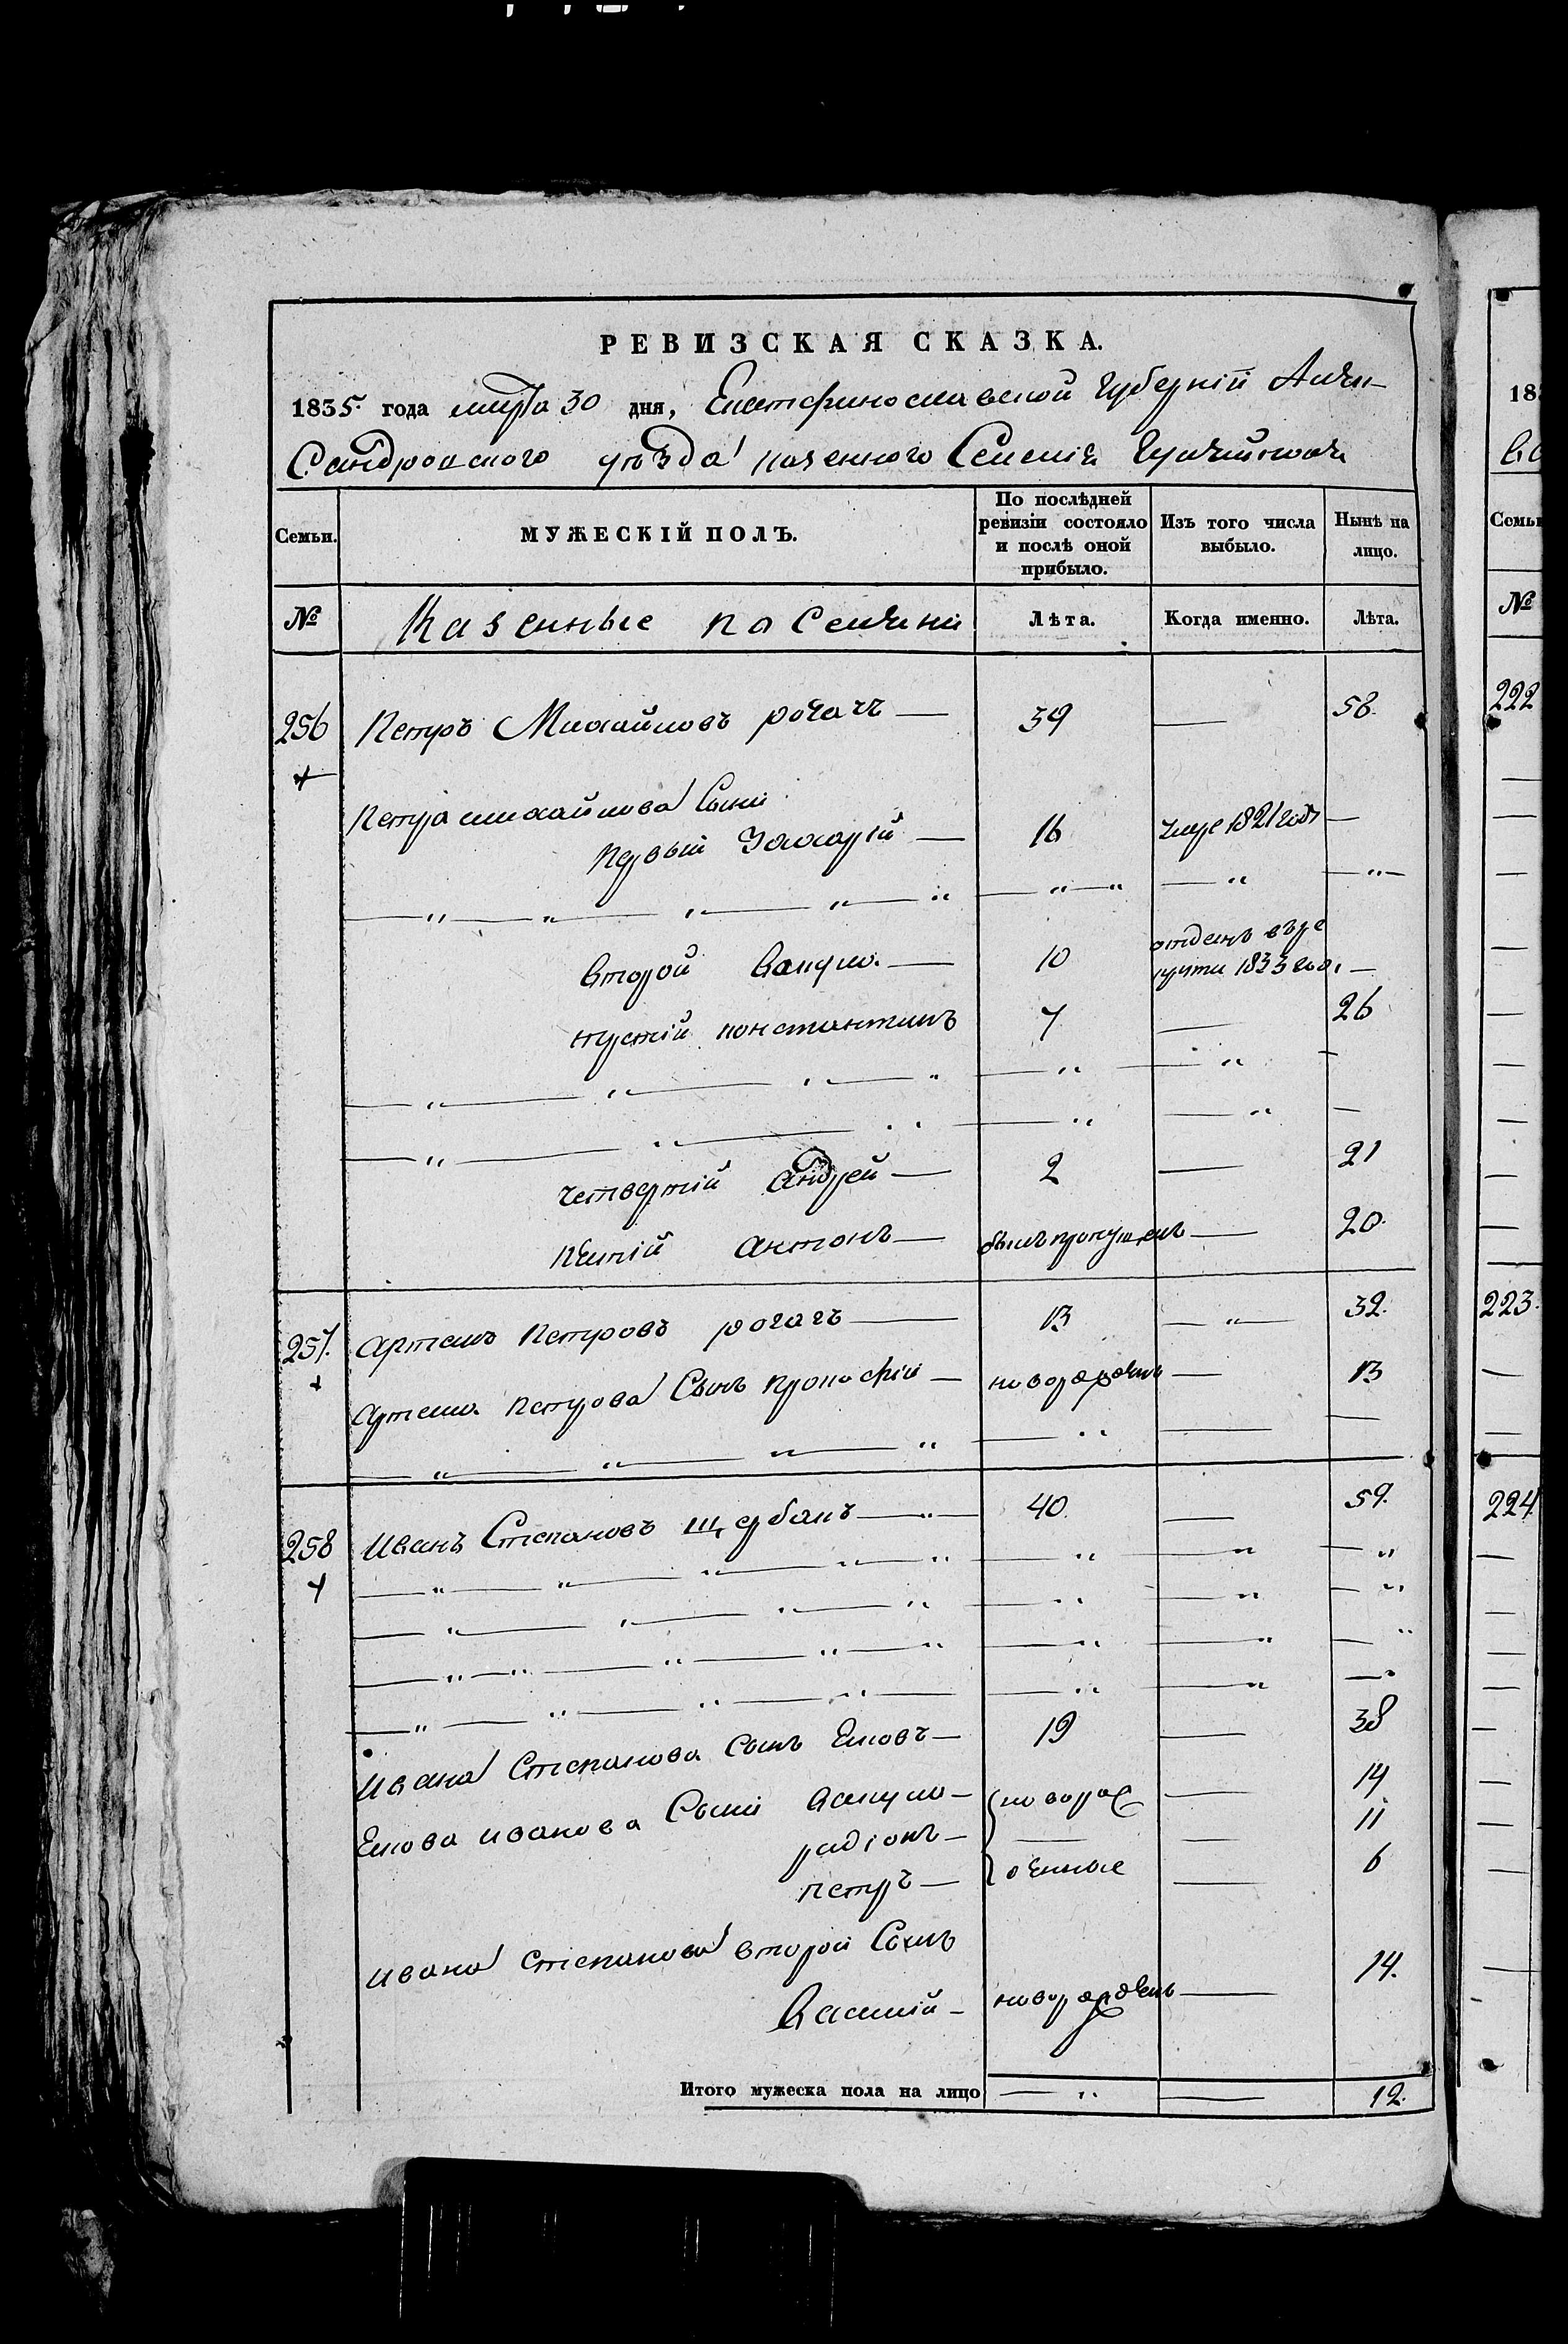 РЕВИЗСКАЯ СКАЗКА.
1835. года марта 30 дня, Екатеринославской Губерніи Алек-
Сандровского уѣзда казенного Селенія Гуляйполя
Семьи. МУЖЕСКІЙ ПОЛЪ. По послѣдней ревизіи состояло и послѣ оной прибыло. Изъ того числа выбыло. Нынѣ на лицо.
№ Казенные поселяни Лѣта. Когда именно. Лѣта.
256 Петръ Михайловъ рогачъ — 39 — 58.
Петра михайлова Сыни
первый Захарій — 16 умре 1821 года —
второй Вакула — 10 отданъ въ рекруты 1833 года —
третій константинъ 7 — 26
четвертій андрей — 2 — 21
пятій антонъ — былъ пропущенъ — 20.
257. артемъ петровъ рогачъ — 13 — 32.
артема петрова Сынъ прокофій — новорожденъ — 13
258 иванъ Степановъ щербанъ — 40. — 59.
ивана Степанова сынъ Яковъ — 19 — 38
Якова иванова Сыни вакула — новорож — 14
радіонъ — — 11
петръ — денные — 6
ивана степанова второй Сынъ
Василій — новорожденъ — 14.
Итого мужеска пола на лицо — — 12.
18
Семьи
№
222
223.
224